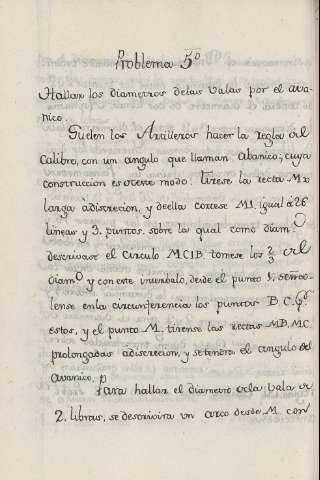 Problema 5º
Hallar los diametros delas valas por el ava-
nico.
Suelen los Artilleros hacer la regla del
Calibre, con un angulo que llaman Abanico, cuya
construccion es deeste modo: tirese la recta Mx
larga adiscrecion, y deella cortese M1, igual á 26
lineas y 3, puntos, sobre la qual como diamº
descrivase el Circulo MCIB, tomese los 2/3 del
diamº y con este intervalo, desde el punto 1, seña-
lense enla circunferencia los puntos B.C. y de
estos, y el punto M, tirense las rectas MB, MC,
prolongadas adiscrecion, y setendra el angulo del
avanico.
Para hallar el diametro dela vala de
2, libras, se descrivira un arco desde M, con